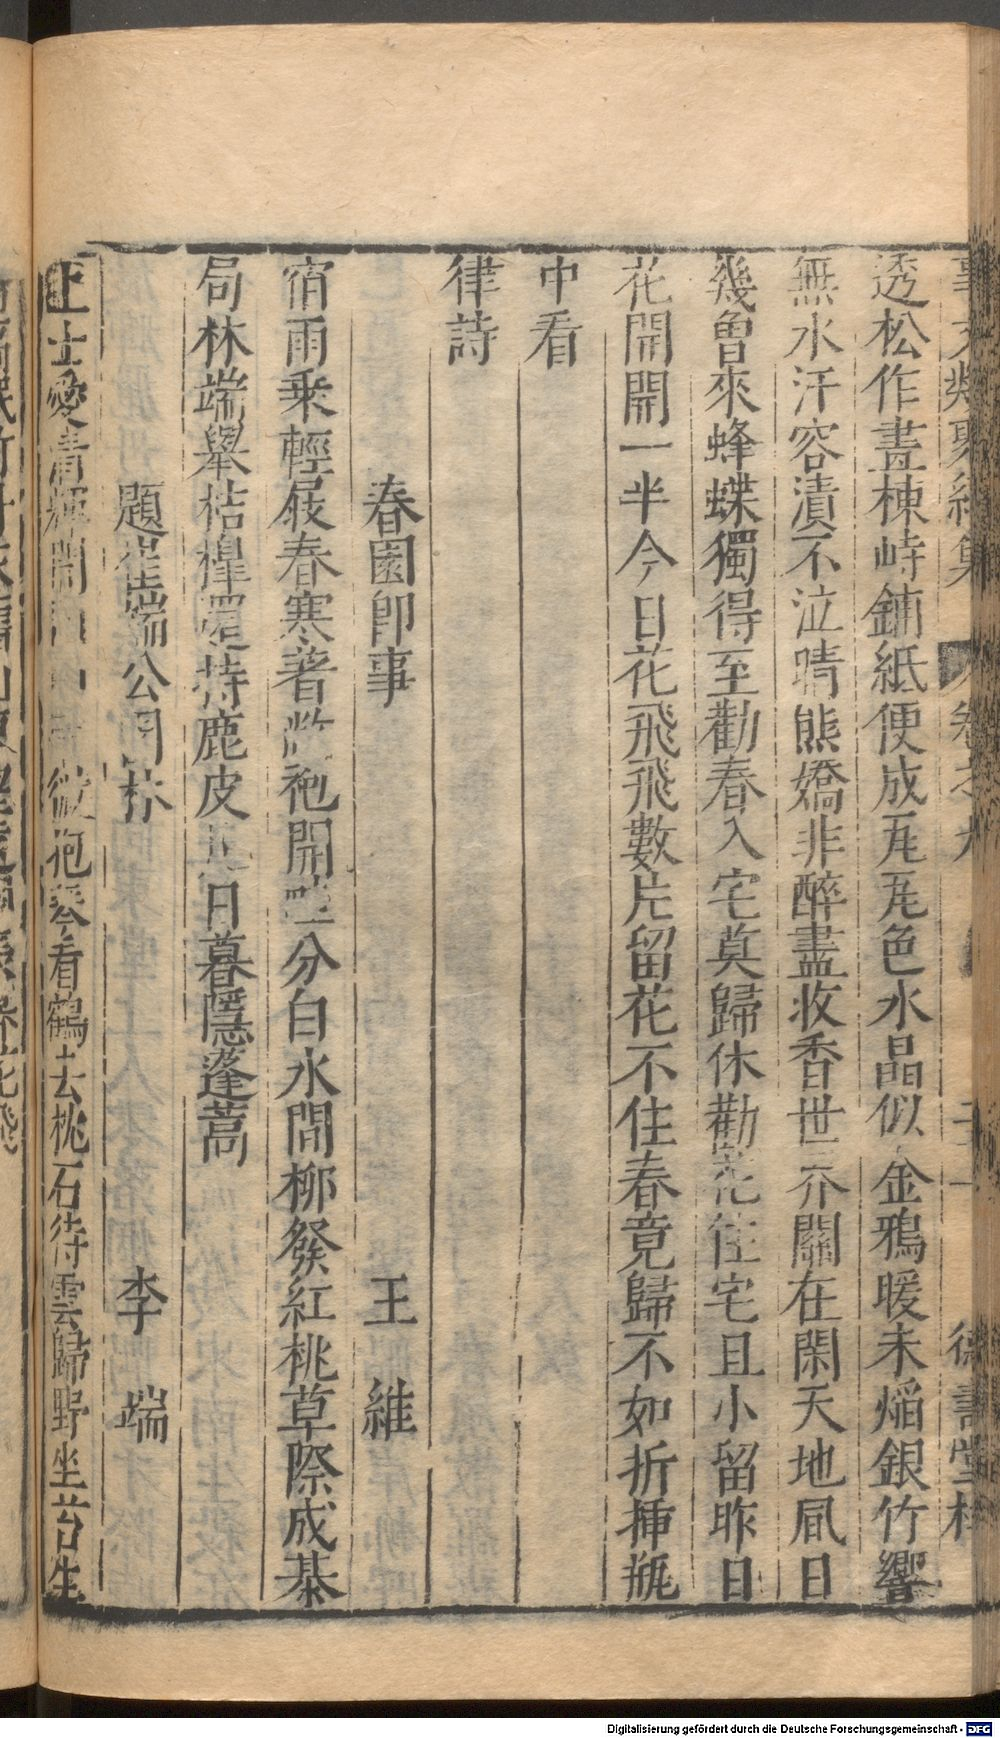 事文類聚 集 卷之九 二十一 德壽堂梓
透松作晝棟峙鋪紙便成瓦瓦色水晶似金鴉暖未熖銀竹響
無水汗容漬不泣晴熊嬌非醉盡收香世界關在閑天地風日
幾曾來蜂蝶獨得至勸春入宅莫歸休勸花住宅且小留昨日
花開開一半今日花飛飛數片留花不住春竟歸不如折揷瓶
中看
律詩
春園即事 王維
宿雨乘輕屐春寒著敝袍開畦分白水間柳發紅桃草際成棊
局林端舉桔橰還持鹿皮 日暮隱蓬蒿
題崔端公園林 李端
上士愛清輝開 微抱琴看鶴去枕石待雲歸野坐苔生
Digitalisierung gefördert durch die Deutsche Forschungsgemeinschaft - DFG